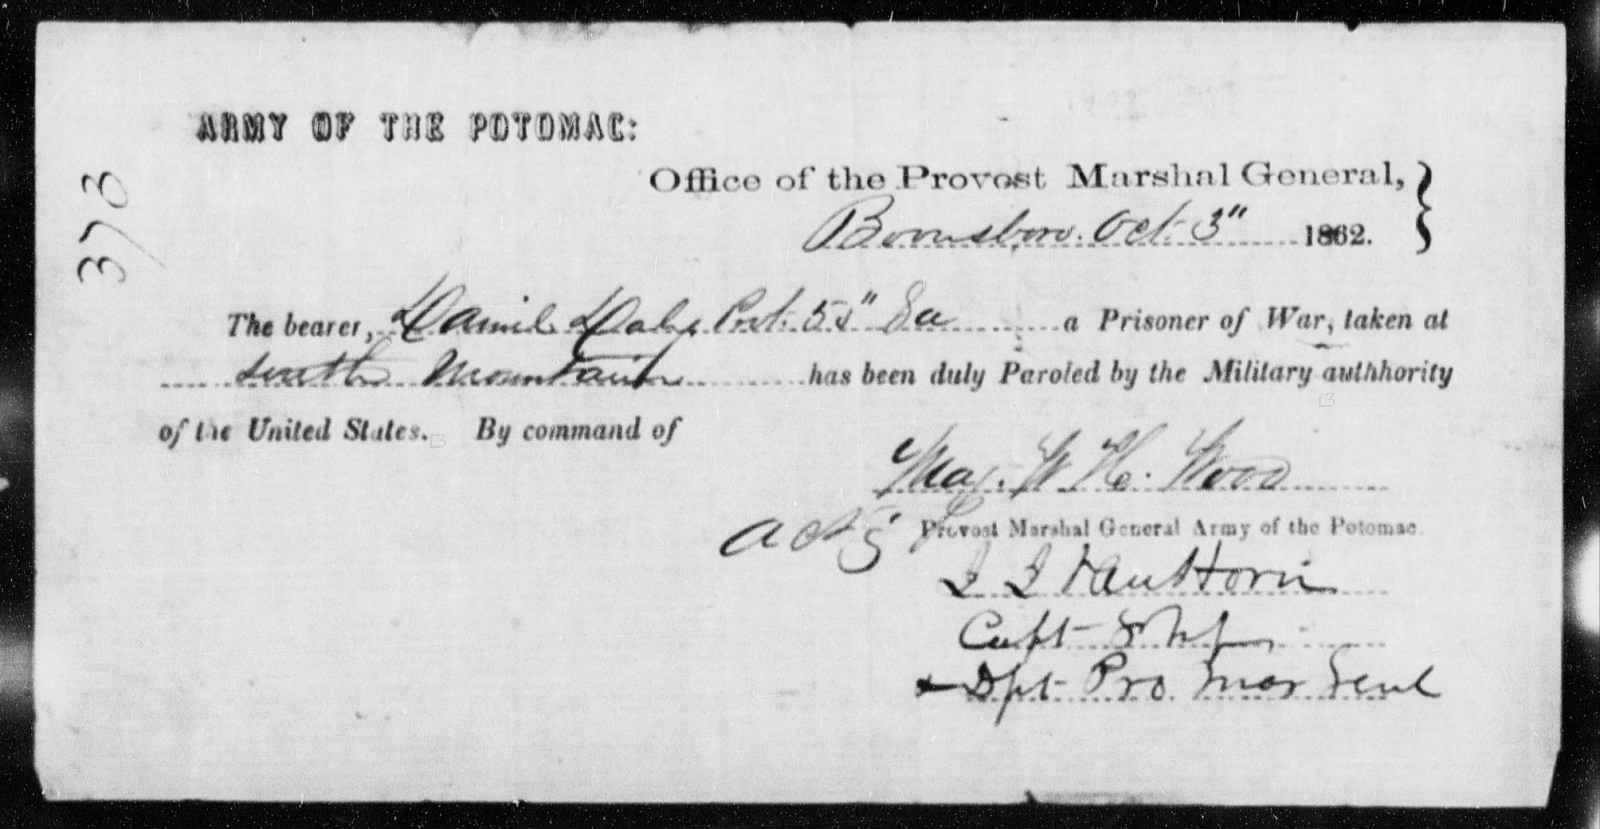 ARMY OF THE POTOMAC:
Office of the Provost Marshal General,
Boonsboro. Oct. 3" 1862.
The bearer, Daniel Pvt. 5" a Prisoner of War, taken at
South Mountain has been duly Paroled by the Military authhority
of the United States. By command of
Maj. W. H. Wood
actg Provost Marshal General Army of the Potomac.
J J Van Horn
Capt 8 Inf
& Dpt Pro Mar Genl
373